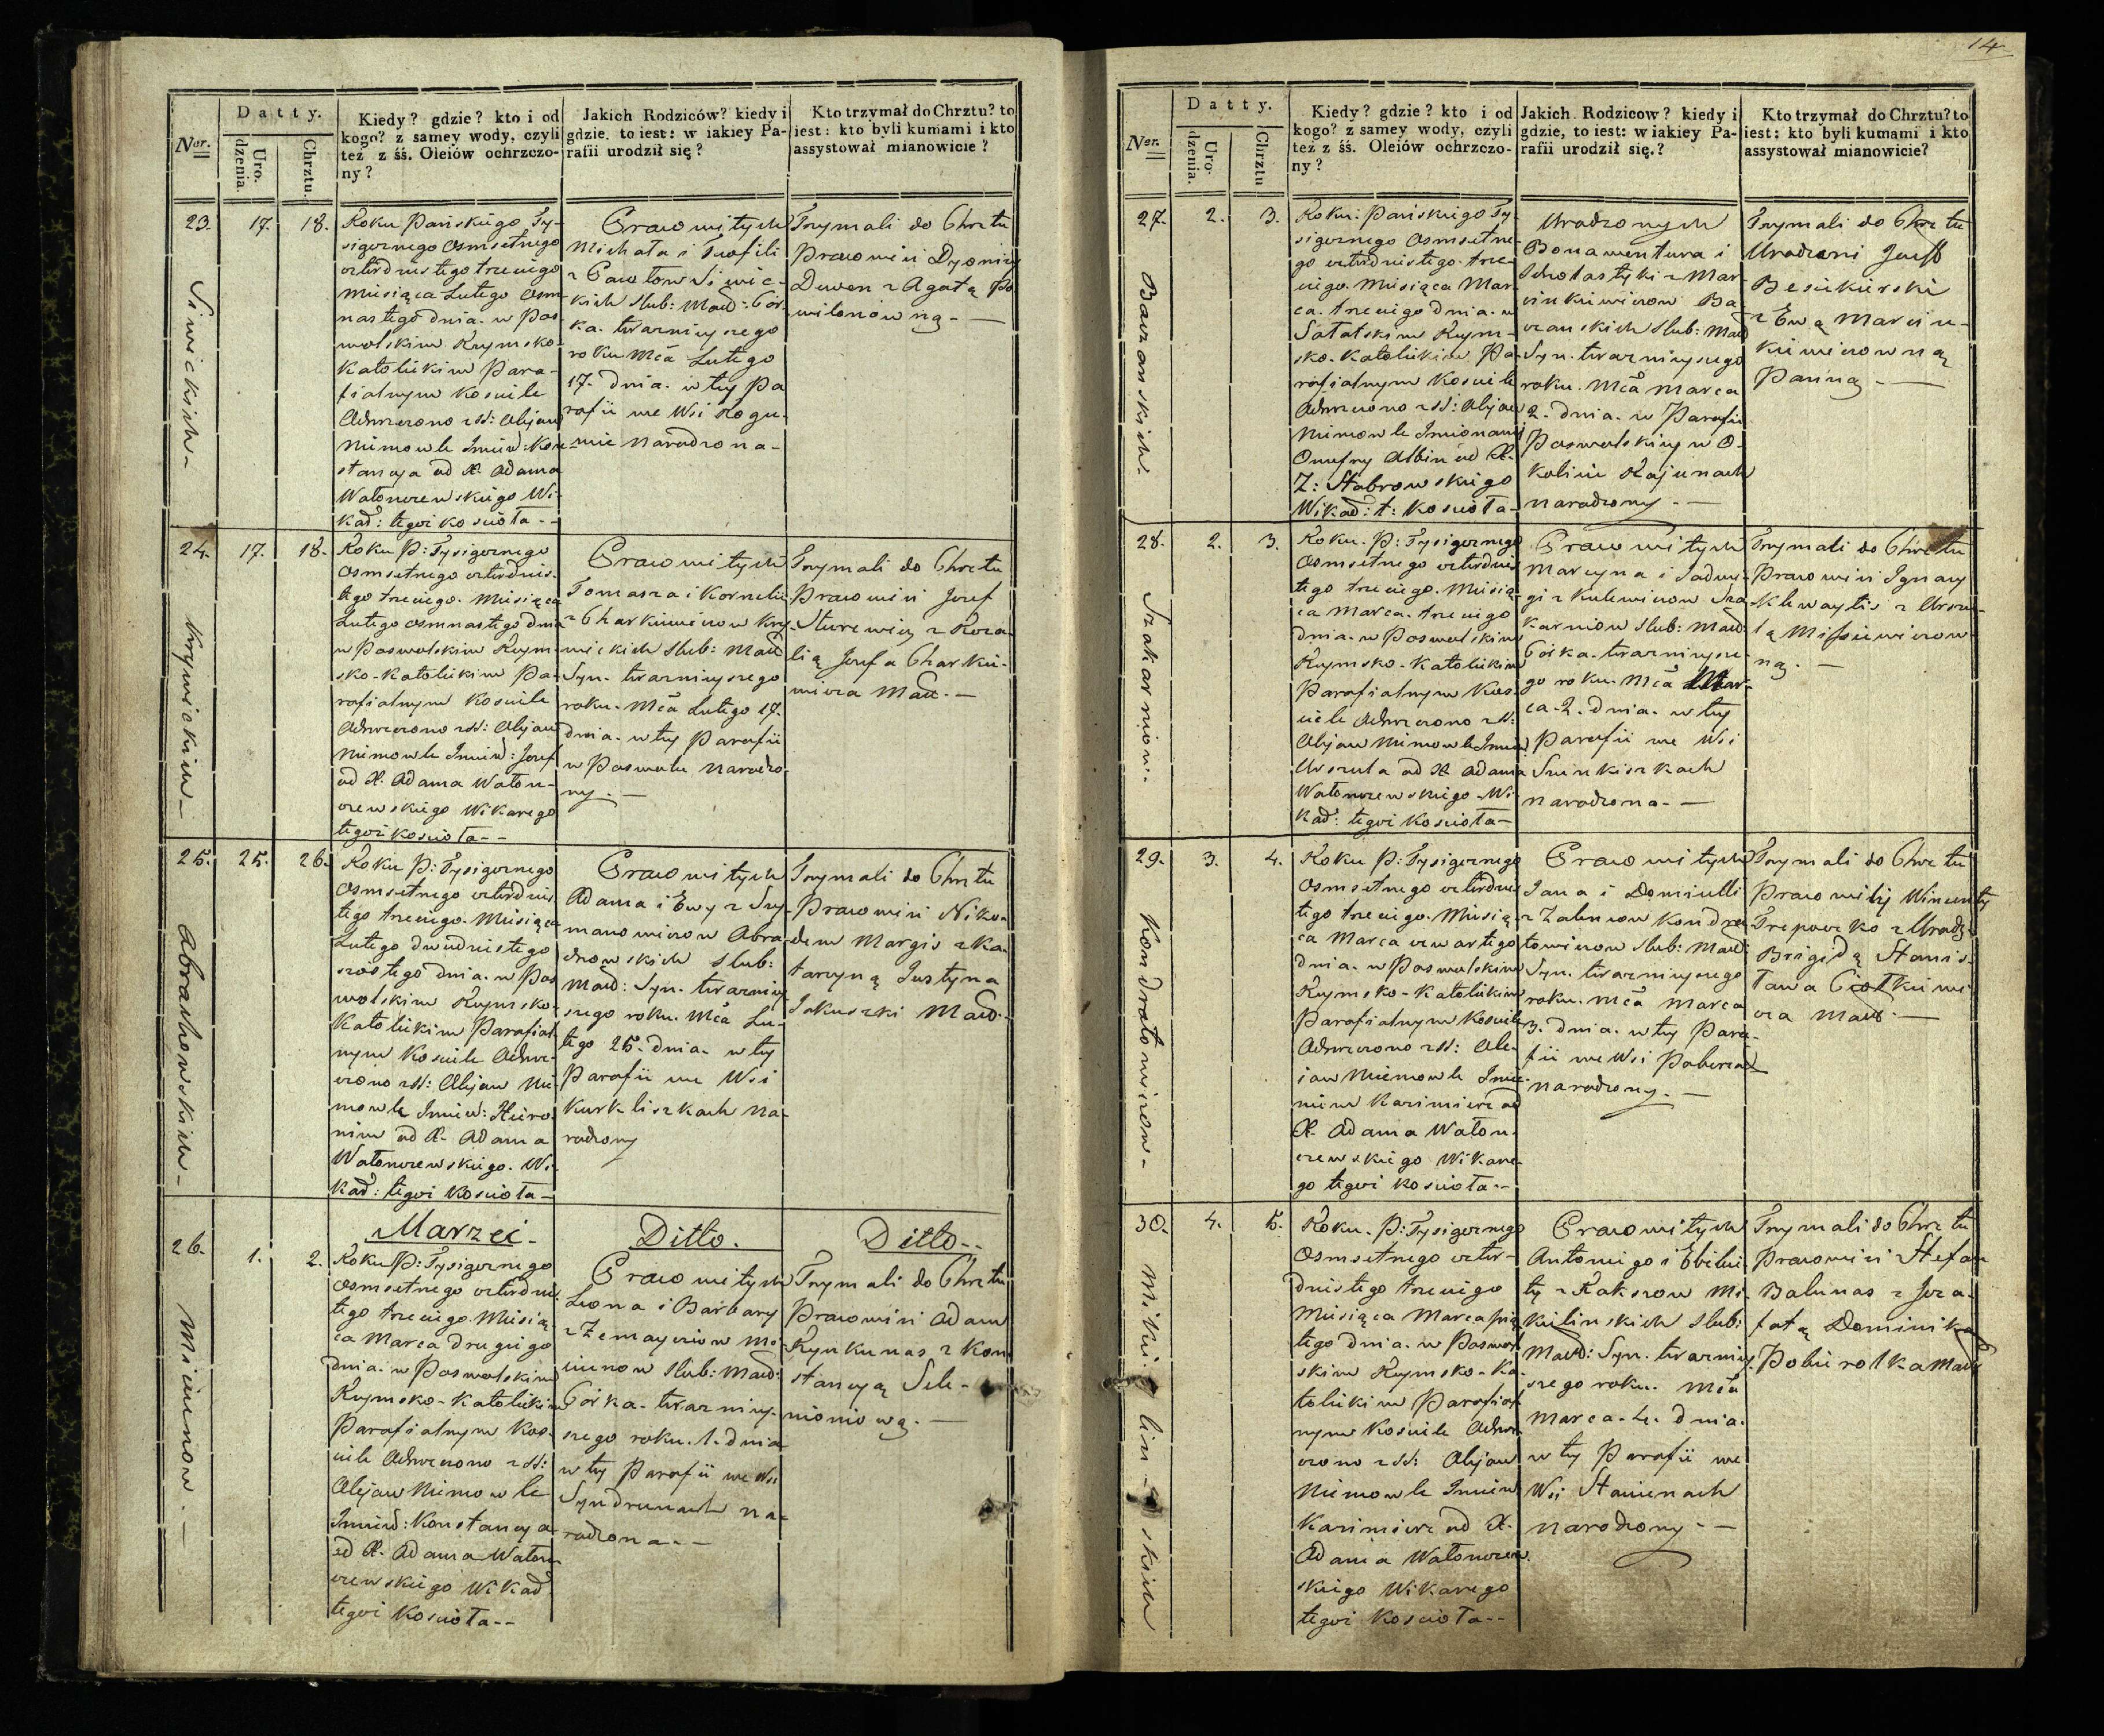 14
Ner.
Datty.
Uro-
dzenia.
Chrztu.
Kiedy? gdzie? kto i od
kogo? z samey wody, czyli
też z śś. Oleiów ochrzczo-
ny?
Jakich Rodziców? kiedy i
gdzie, to iest: w iakiey Pa-
rafii urodził się?
Kto trzymał do Chrztu? to
iest: kto byli kumami i kto
assystował mianowicie?
23.
17.
18.
Siwickich
Roku Pańskiego Ty-
siącznego Osmsetnego
czterdziestego trzeciego
Miesiąca Lutego Osm-
nastego dnia w Pos-
wolskim Rzymsko-
Katolickim Para-
fialnym Kosciele
Ochrzczono z SS: Olejow
Niemowle Imieniem: Kon-
stancya od X. Adama
Wałonczewskiego Wi-
kar: tegoż kosciola--
Pracowitych
Michała i Teofili
z Pawłow Siwic-
kich Slub: Małż: Cór-
ka. teraznieyszego
roku Mca Lutego
17. dnia. w tey Pa
rafii we Wsi
narodzona-
Trzymali do Chrztu
Pracowici Dyonizy
z Agatą
24.
17.
18.
Krywickich-
Roku P: Tysiącznego
Osmsetnego czterdzies-
tego trzeciego. Miesiąca
Lutego Osmnastego dnia
w Poswolskim Rzym-
sko-Katolickim Pa-
rafialnym Kosciele
Ochrzczono z SS: Olejow
Niemowle Imien: Jozef
od X. Adama Wałon-
czewskiego Wikarego
tegoż kosciola--
Pracowitych
Tomasza i Kornelii
z Charkiewiczow Kry-
wickich Slub: Małż
Syn. teraznieyszego
roku. Mca Lutego 17.
dnia. w tey Parafii
w Poswolu narodzo
ny.-
Trzymali do Chrztu
Pracowici Jozef
z Roza-
lią Jozefa Charkie-
wicza Małż.-
25.
25.
26.
Abrachowskich-
Roku P: Tysiącznego
Osmsetnego czterdzies
tego trzeciego. Miesiąca
Lutego dwudziestego
szostego dnia. w Pos
wolskim Rzymsko-
Katolickim Parafial
nym Kosciele Ochrz-
czono z SS: Olejow Nie
mowle Imien: Hiero-
nim od X. Adama
Wałonczewskiego. Wi-
kar: tegoż Kosciola-
Pracowitych
Adama i Ewy z Szy-
manowiczow Abra-
chowskich Slub:
Małż: Syn. terazniey
szego roku. Mca Lu-
tego 25. dnia. w tey
Parafii we Wsi
Kurkliszkach na-
rodzony
Trzymali do Chrztu
Pracowici Niko-
dem Margis z Ka-
tarzyną Justyna
Jakuszki Małż.
26.
1.
2.
Miciunow.-
Marzec-
Roku P: Tysiącznego
Osmsetnego czterdzies
tego trzeciego. Miesią
ca Marca drugiego
dnia. w Poswolskim
Rzymsko-Katolickim
Parafialnym Kos-
ciele Ochrzczono z SS:
Olejow Niemowle
Imien: Konstancya
od X. Adama Wałon-
czewskiego Wikar
tegoż Kosciola--
Ditto.
Pracowitych
Leona i Barbary
z Zemayciow Mi-
ciunow Slub: Małż:
Córka. terazniey-
szego roku. 1. dnia
w tey Parafii we Wsi
na-
rodzona.-
Ditto--
Trzymali do Chrztu
Pracowici Adam
Rynkunas z Kon
stancyą
Ner.
Datty.
Uro-
dzenia.
Chrztu
Kiedy? gdzie? kto i od
kogo? z samey wody, czyli
też z śś. Oleiów ochrzczo-
ny?
Jakich Rodzicow? kiedy i
gdzie, to iest: w iakiey Pa-
rafii urodził się.?
Kto trzymał do Chrztu? to
iest: kto byli kumami i kto
assystował mianowicie?
27.
2.
3.
Roku: Pańskiego Ty-
siącznego Osmsetne-
go czterdziestego. trze-
ciego. Miesiąca Mar-
ca. trzeciego dnia. w
Rzym-
sko-Katolickim Pa-
rafialnym Kosciele
Ochrzczono z SS: Olejow
Niemowle Imionami
Onufry Albin od X.
Z: Stabrowskiego
Wikar: t: Kosciola-
Urodzonych
Bonawentura i
Scholastyki z Mar
cinkiewiczow
Slub: Małż
Syn. teraznieyszego
roku. Mca Marca
2. dnia. w Parafii
Poswolskiey w O-
kolicie Kajunach
narodzony.-
Trzymali do Chrztu
Urodzeni Jozef
z Ewą Marcin-
kiewiczowną
Panną.-
28.
2.
3.
Szakarniow.-
Roku. P: Tysiącznego
Osmsetnego czterdzies
tego. trzeciego. Miesią-
ca Marca. trzeciego
dnia. w Poswolskim
Rzymsko-Katolickim
Parafialnym Kos-
ciele Ochrzczono z SS:
Olejow Niemowle Imien
Urszula od X. Adama
Wałonczewskiego. Wi-
kar: tegoż Kosciola-
Pracowitych
Marcyna i Jadwi-
gi z Kulewiczow Sza
karniow Slub: Małż:
Córka. teraznieysze-
go roku. Mca Mar-
ca. 2. dnia. w tey
Parafii we Wsi
narodzona.-
Trzymali do Chrztu
Pracowici Ignacy
z Urszu-
lą Misiewiczow-
ną.-
29.
3.
4.
Kondratowiczow-
Roku P: Tysiącznego
Osmsetnego czterdzies
tego trzeciego. Miesią-
ca Marca czwartego
dnia. w Poswolskim
Rzymsko-Katolickim
Parafialnym Kosciele
Ochrzczono z SS: Ole-
jow Niemowle Imie-
niem Kazimierz od
X. Adama Wałon-
czewskiego Wikare-
go tegoż kosciola.-
Pracowitych
Jana i Domicelli
z Kondra
towiczow Slub: Małż:
Syn. teraznieyszego
roku. Mca Marca
3. dnia. w tey Para-
fii we Wsi
narodzony.-
Trzymali do Chrztu
Pracowity Wincenty
z Urodz:
Brigidą Stanis-
ława
Małż.-
30.
4.
5.
Mikie lin skich
Roku. P: Tysiącznego
Osmsetnego czter-
dziestego trzeciego
Miesiąca Marca pią
tego dnia. w Poswol
skim Rzymsko-Ka-
tolickim Parafial
nym Kosciele Ochrz
czono z SS: Olejow
Niemowle Imien
Kazimierz od X.
Adama Wałonczew
skiego Wikarego
tegoż Kosciola--
Pracowitych
Antoniego i
Mi
kielinskich Slub:
Małż: Syn. terazniey
szego roku. Mca
Marca. 4. dnia.
w tey Parafii we
Wsi Stanienach
narodzony.-
Trzymali do Chrztu
Pracowici Stefan
Balunas z Joza-
fatą Dominika
Małż